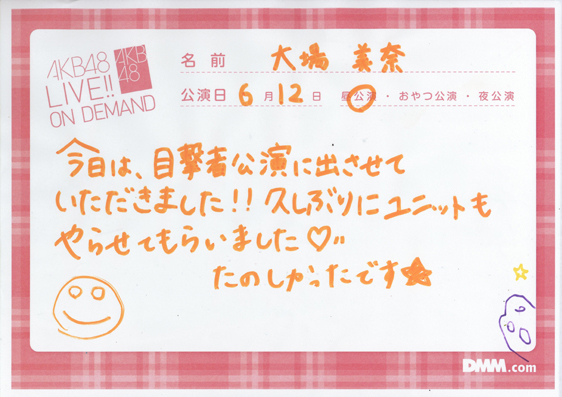 AKB48
LIVE!!
ON DEMAND
AKB
48
名前 大場 美奈
公演日 6月12日 昼公演・おやつ公演・夜公演
今日は、目撃者公演に出させて
いただきました!!久しぶりにユニットも
やらせてもらいました♡"
たのしかったです☆
DMM.com